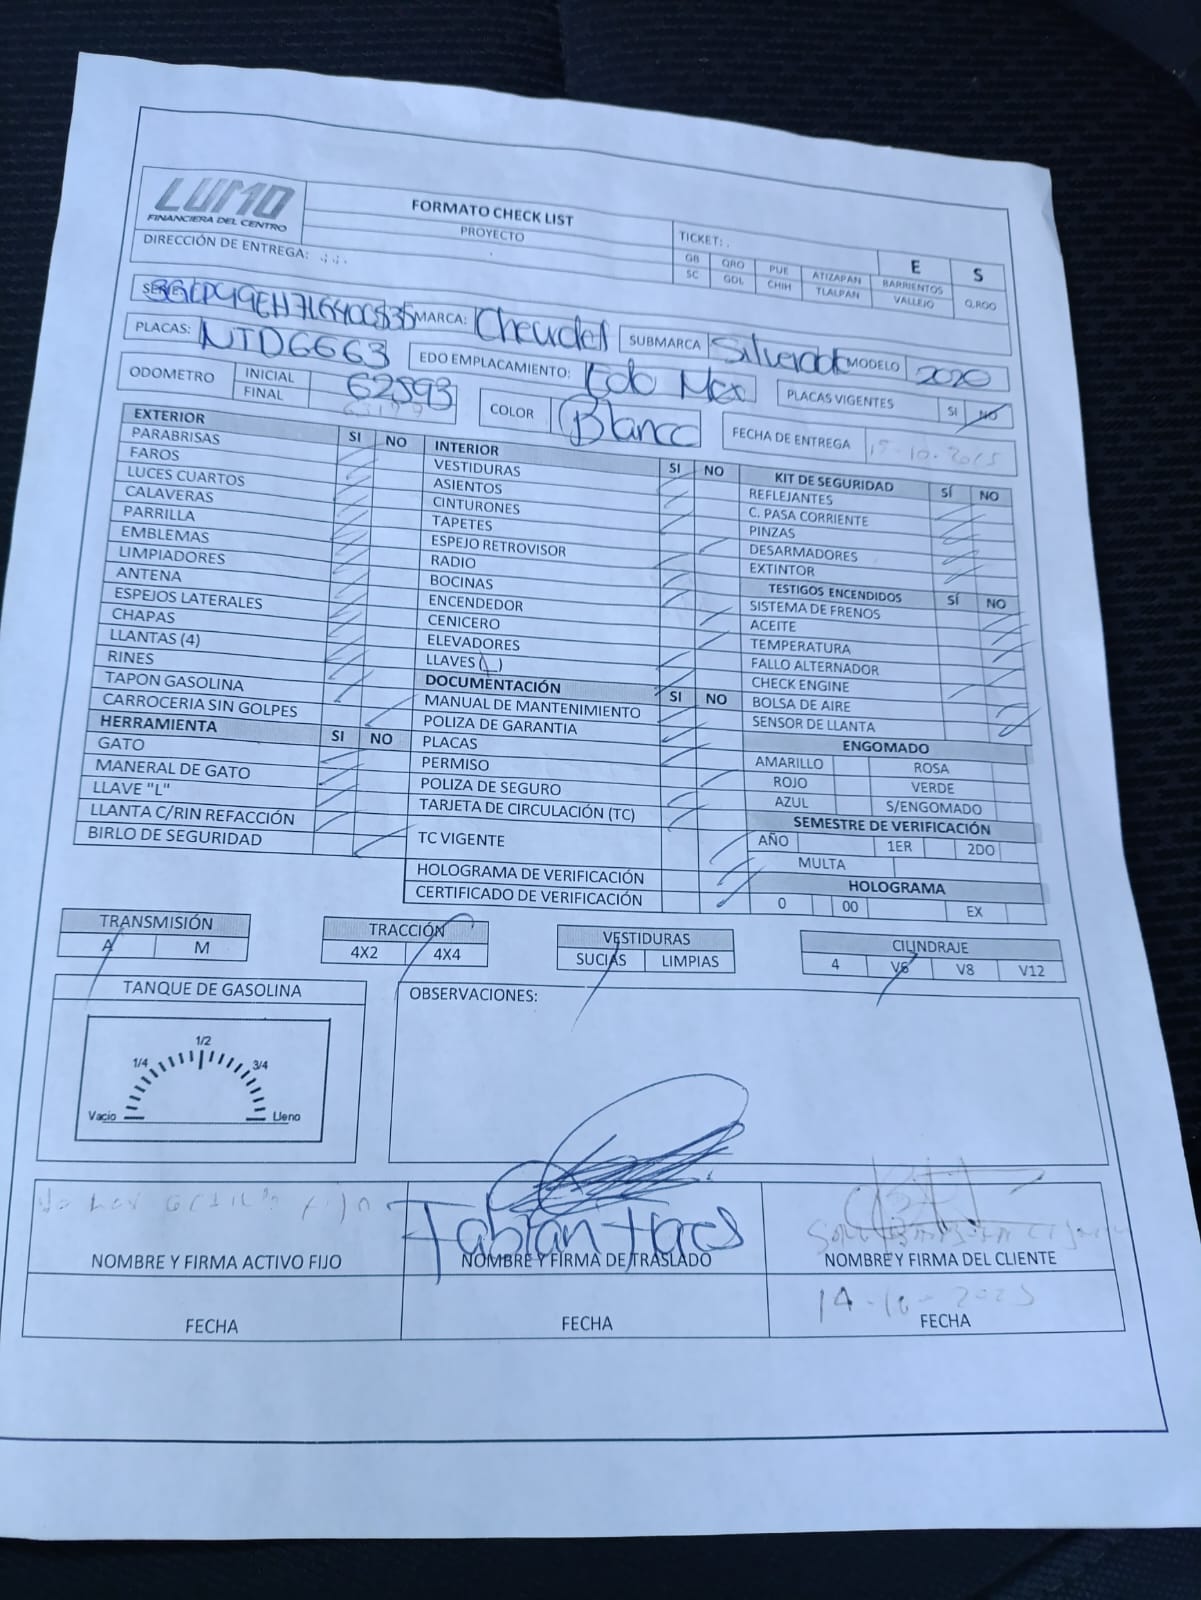 LUMO
FINANCIERA DEL CENTRO
FORMATO CHECK LIST
PROYECTO
TICKET: .
E S
DIRECCIÓN DE ENTREGA:
GB QRO PUE ATIZAPAN BARRIENTOS Q.ROO
SC GDL CHIH TLALPAN VALLEJO
SERIE: MARCA: Chevrolet SUBMARCA Silverado MODELO 2020
PLACAS: NTD6663 EDO EMPLACAMIENTO: Edo Mex PLACAS VIGENTES SI NO
ODOMETRO INICIAL 62593
FINAL
COLOR Blanco FECHA DE ENTREGA 15-10-2025
EXTERIOR SI NO
PARABRISAS
FAROS
LUCES CUARTOS
CALAVERAS
PARRILLA
EMBLEMAS
LIMPIADORES
ANTENA
ESPEJOS LATERALES
CHAPAS
LLANTAS (4)
RINES
TAPON GASOLINA
CARROCERIA SIN GOLPES
HERRAMIENTA SI NO
GATO
MANERAL DE GATO
LLAVE "L"
LLANTA C/RIN REFACCIÓN
BIRLO DE SEGURIDAD
INTERIOR SI NO
VESTIDURAS
ASIENTOS
CINTURONES
TAPETES
ESPEJO RETROVISOR
RADIO
BOCINAS
ENCENDEDOR
CENICERO
ELEVADORES
LLAVES (_)
DOCUMENTACIÓN SI NO
MANUAL DE MANTENIMIENTO
POLIZA DE GARANTIA
PLACAS
PERMISO
POLIZA DE SEGURO
TARJETA DE CIRCULACIÓN (TC)
TC VIGENTE
HOLOGRAMA DE VERIFICACIÓN
CERTIFICADO DE VERIFICACIÓN
KIT DE SEGURIDAD SÍ NO
REFLEJANTES
C. PASA CORRIENTE
PINZAS
DESARMADORES
EXTINTOR
TESTIGOS ENCENDIDOS SÍ NO
SISTEMA DE FRENOS
ACEITE
TEMPERATURA
FALLO ALTERNADOR
CHECK ENGINE
BOLSA DE AIRE
SENSOR DE LLANTA
ENGOMADO
AMARILLO ROSA
ROJO VERDE
AZUL S/ENGOMADO
SEMESTRE DE VERIFICACIÓN
AÑO 1ER 2DO
MULTA
HOLOGRAMA
0 00 EX
TRANSMISIÓN
A M
TRACCIÓN
4X2 4X4
VESTIDURAS
SUCIAS LIMPIAS
CILINDRAJE
4 V6 V8 V12
TANQUE DE GASOLINA
1/2
1/4 3/4
Vacio Lleno
OBSERVACIONES:
Fabian
NOMBRE Y FIRMA ACTIVO FIJO
NOMBRE Y FIRMA DE TRASLADO
NOMBRE Y FIRMA DEL CLIENTE
14-10-2025
FECHA
FECHA
FECHA